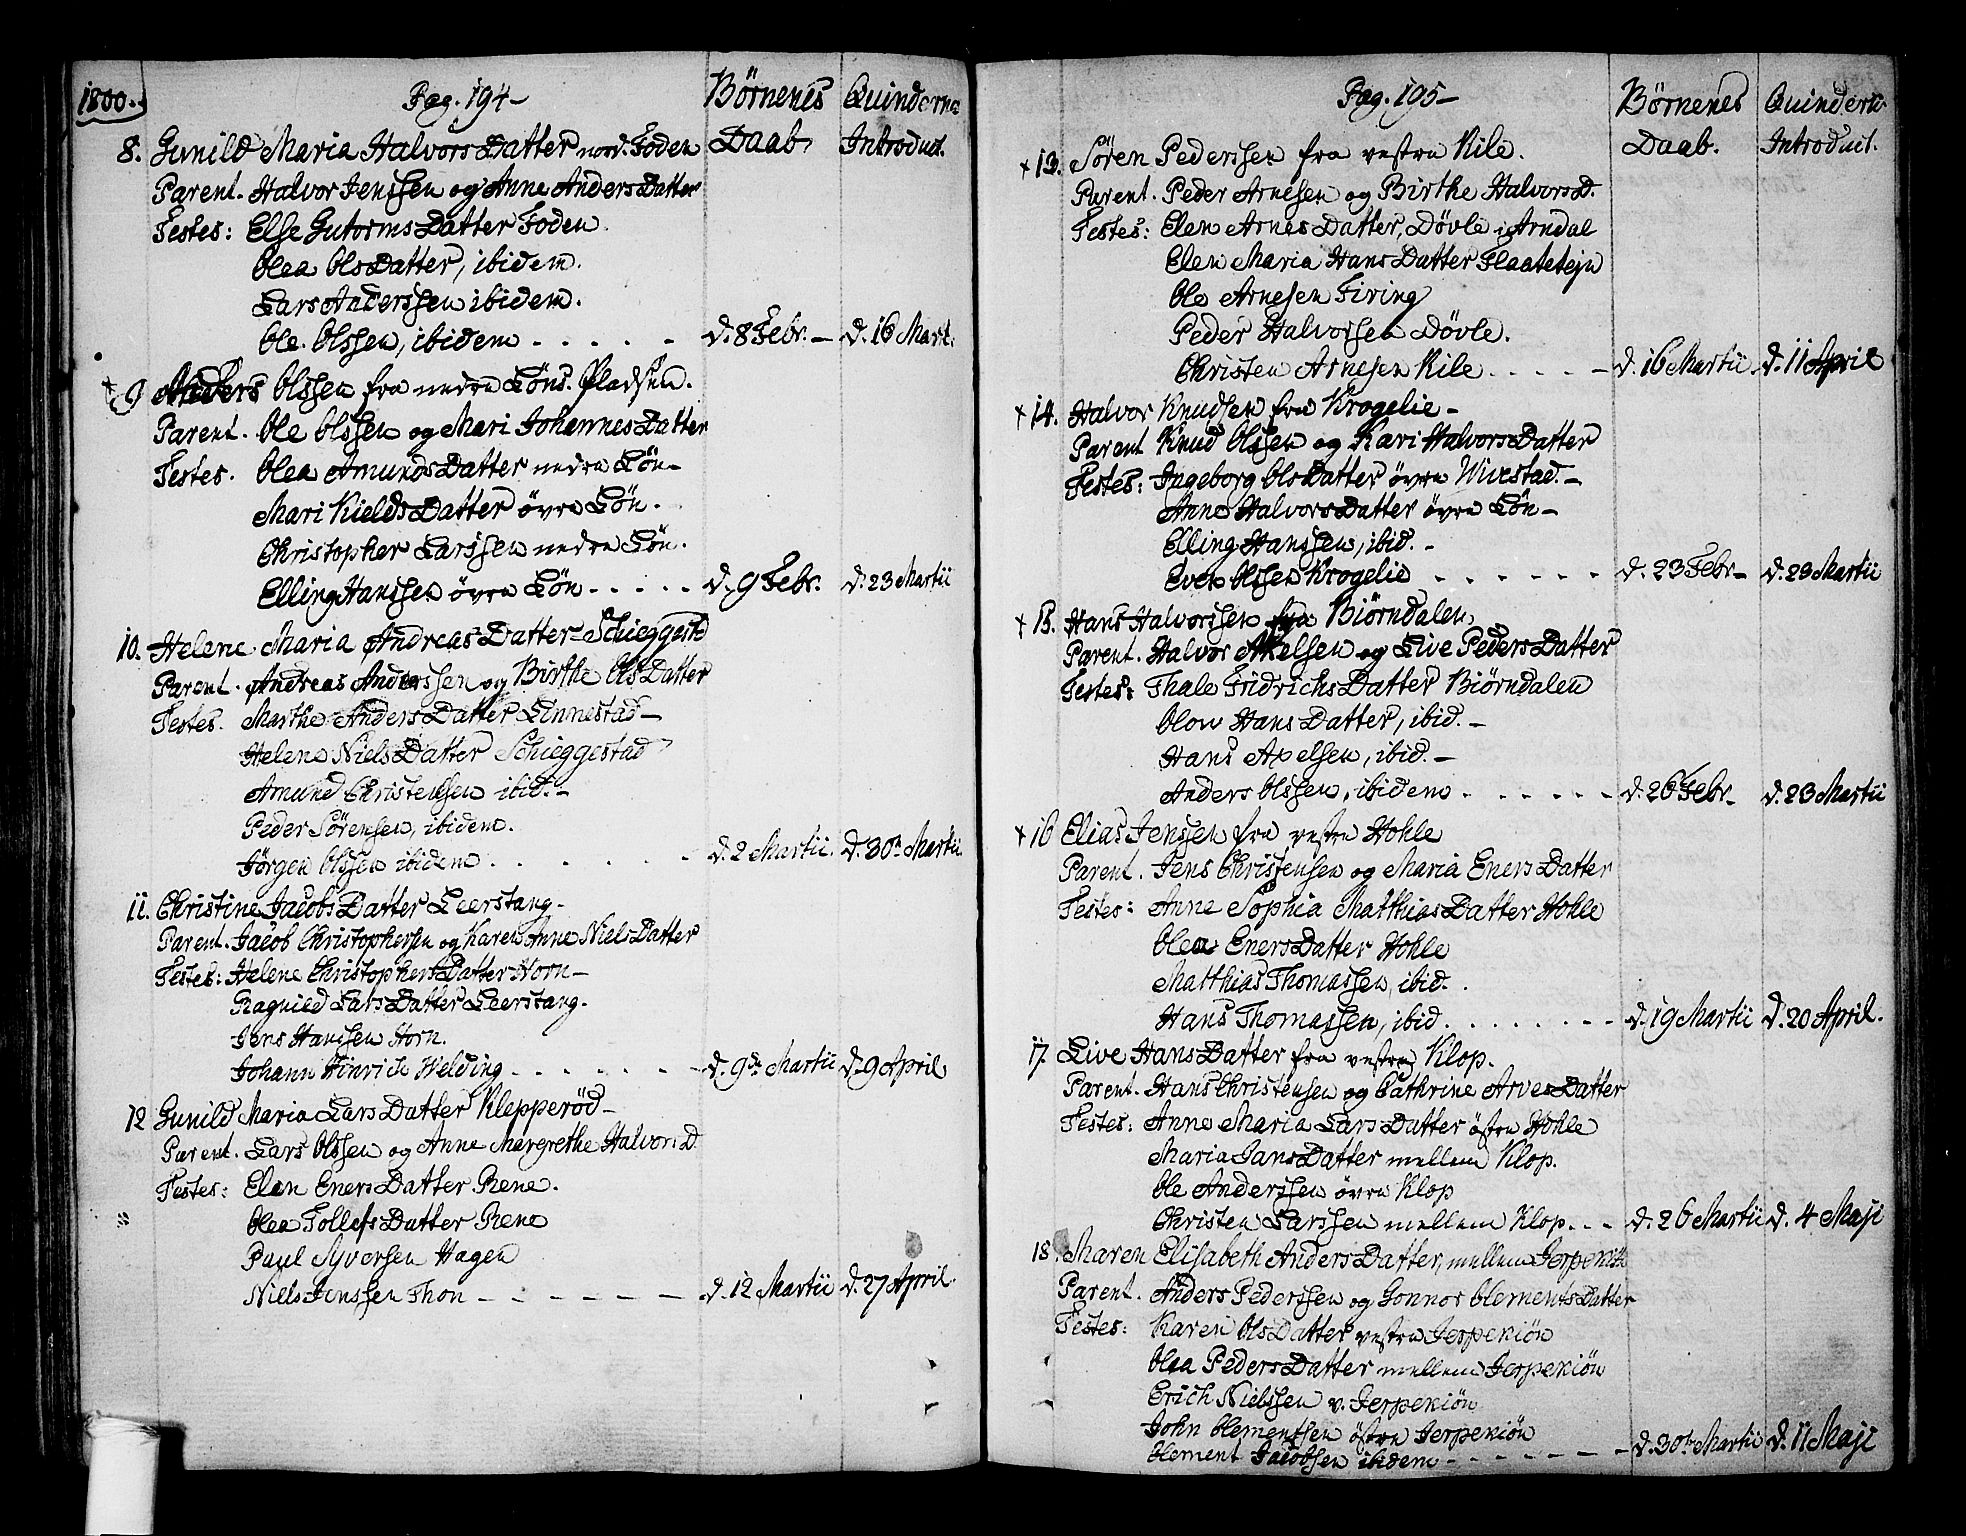 1800.
Pag. 194 -
Børnenes Daab,
Quinderne Introduct.
8. Gunild Maria Halvors Datter nord. Foden
Parent. Halvor Jenssen og Anne Anders Datter
Testes: Else Gutorms Datter Foden.
Olea Ols Datter, ibidem.
Lars Anderssen ibidem.
Ole Olssen, ibidem . . . . . d. 8 Febr. - d. 16 Mart.
+ 9 Anders Olssen fra nedre Løns. Pladsen.
Parent. Ole Olssen og Mari Johannes Datter
Testes. Olea Amunds Datter nedre Løn -
Mari Kields Datter øvre Løn.
Christopher Larssen nedre Løn.
Elling Hanssen øvre Løn . . . . . d. 9 Febr. d. 23 Martii
10. Helene Maria Andreas Datter - Schieggestd
Parent. Andreas Anderssen og Birthe Ols Datter
Testes. Marthe Anders Datter Linnestad -
Helene Niels Datter Schieggestad
Amund Christensen ibid. -
Peder Sørensen, ibidem.
Jørgen Olssen ibidem . . . . . . d. 2 Martii. d. 30. Martii.
11. Christine Jacobs Datter Leerstang -
Parent. Jacob Christophersen og Karen Anne Niels Datter
Testes: Helene Christophers Datter Horn -
Ragnild Lars Datter Leerstang.
Jens Hanssen Horn.
Johann Hinrich Welding . . . . . . - d. 9de Martii d. 9 April
12 Gunild Maria Lars Datter Klepperød -
Parent. Lars Olssen og Anne Margrethe Halvors D
Testes: Elen Eners Datter Rene.
Olea Tollefs Datter Rene
Paul Syversen Hagen
Niels Jenssen Thon - - - - - - d. 12 Martii d. 27 April.
Pag. 195 -
Børnenes Daab.
Quindern Introduct.
+ 13. Søren Pederssen fra vestre Kile.
Parent. Peder Arnesen og Birthe Halvors D.
Testes: Elen Arnes Datter, Døvle i Arndal
Elen Maria Hans Datter Flaatetejn
Ole Arnesen Firing
Peder Halvorssen Døvle.
Christen Arnesen Kile . . . . . - d. 16 Martii d. 11 April
+ 14. Halvor Knudsen fra Krogelie -
Parent Knud Olssen og Kari Halvors Datter
Testes: Ingeborg Ols Datter øvre Wivestad. -
Anne Halvors Datter øvre Løn -
Elling Hanssen, ibid. -
Even Olssen Krogelie . . . . . . d. 23 Febr - d. 28 Martii
+ 15. Hans Halvorssen fra Biørndalen,
Parent. Halvor Axelsen og Live Peders Datter
Testes: Thale Fridrichs Datter Biørndalen
Olow Hans Datter, ibid. -
Hans Axelsen, ibid. -
Anders Olssen, ibidem . . . . . - d. 26 Febr. d. 23 Martii
+ 16 Elias Jenssen fra vestre Hohle
Parent. Jens Christensen og Maria Eners Datter
Testes: Anne Sophia Matthias Datter Hohle
Olea Eners Datter Hohle
Matthias Thomassen, ibid. .
Hans Thomassen, ibid . . . . . . . - d. 19 Martii d. 20 April.
17. Live Hans Datter fra vestre Klop.
Parent. Hans Christensen og Cathrine Arves Datter
Testes: Anne Maria Lars Datter østre Hohle
Maria Jans Datter mellem Klop.
Ole Anderssen øvre Klop
Christen Larssen mellem Klop . . - d. 26 Martii d. 4 Maji
18. Maren Elisabeth Anders Datter, mellem Jerpekiö
Parent. Anders Pederssen og Gonnor Clements Datter
Testes: Karen Ols Datter vestre Jerpekiön
Olea Peders Datter mellem Jerpekiön
Erich Nielssen v. Jerpekiön
John Clementsen østre Jerpekiön
Clement Jacobsen ibidem - - - - - - - d. 30te Martii d. 11 Maji